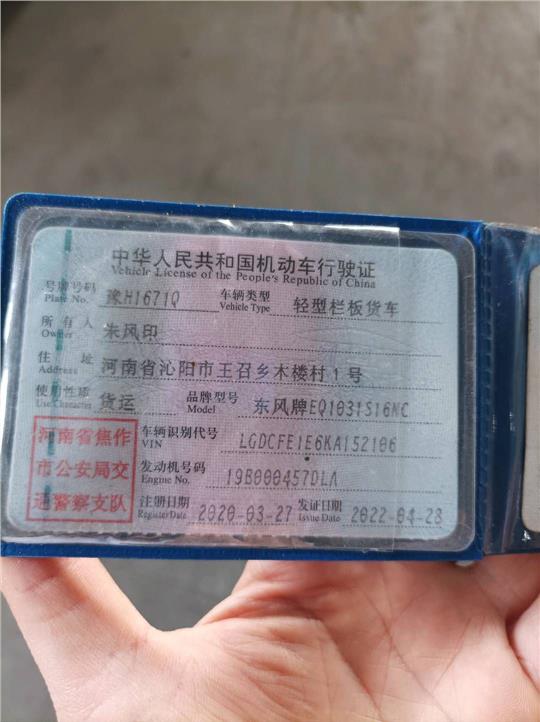 中华人民共和国机动车行驶证
Vehicle License of the People's Republic of China
号牌号码 豫H1671Q 车辆类型 轻型栏板货车
Plate No. Vehicle Type
所有人 朱风印
Owner
住址 河南省沁阳市王召乡木楼村1号
Address
使用性质 货运 品牌型号 东风牌EQ1031S16NC
Use Character Model
河南省焦作
市公安局交
通警察支队
车辆识别代号 LGDCFE1E6KA152106
VIN
发动机号码 19B000457DLA
Engine No.
注册日期 2020-03-27 发证日期 2022-04-28
Register Date Issue Date